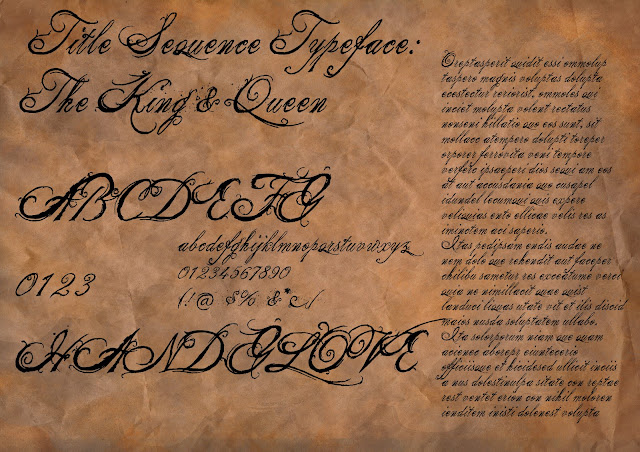 Title Sequence Typeface:
The King & Queen
ABCDEFG
abcdefghijklmnopqrstuvwxyz
01234567890
0123
(!@ $% &*
HANDGLOVE
Oreptasperit quidit essi ommolup
taspero magnis voluptas dolupta
ecestectur reriorist, ommoles qui
inciet molupta volent rectatus
nonseni hillatio quo eos sunt, sit
mollacc atempero dolupti toreper
orporer ferrovita veni tempore
verferc ipsaperi dios sequi am eos
at aut accusdania quo cusapel
idundel lecumqui quis expere
veliquias ento ellicae velis res as
iminctem aci saperio.
Itas pedipsam endis audae ne
nem dolo que rehendit aut faceper
chilibu sametur res exceatume verci
quia ne nimillacit quae quist
landuci liquas utate vit et ilis discid
maios nusda soluptatem ullabo.
Ita solorporum niam que quam
acienec aboreps eiuntecerio
officiisque et hicidesed ullicit inciis
a nus dolestinulpa sitate con reptae
rest ventet erion con nihil moloren
ienditem inisti dolenest volupta